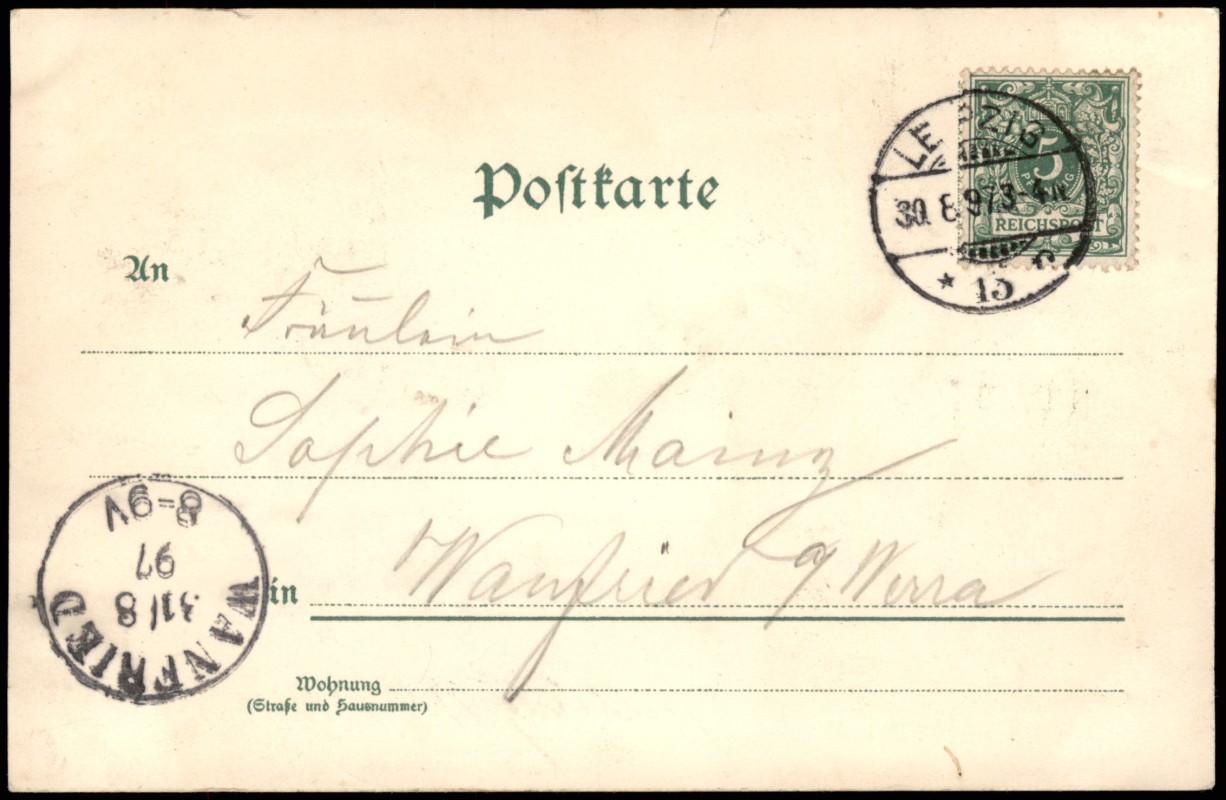 Postkarte
LEIPZIG
30.8.97.3-4N.
* 13
5
PFENNIG
REICHSPOST
An
Fräulein
Sophie Mainz
in Wanfried a/Werra
Wohnung
(Straße und Hausnummer)
WANFRIED
31/8
97
8-9V